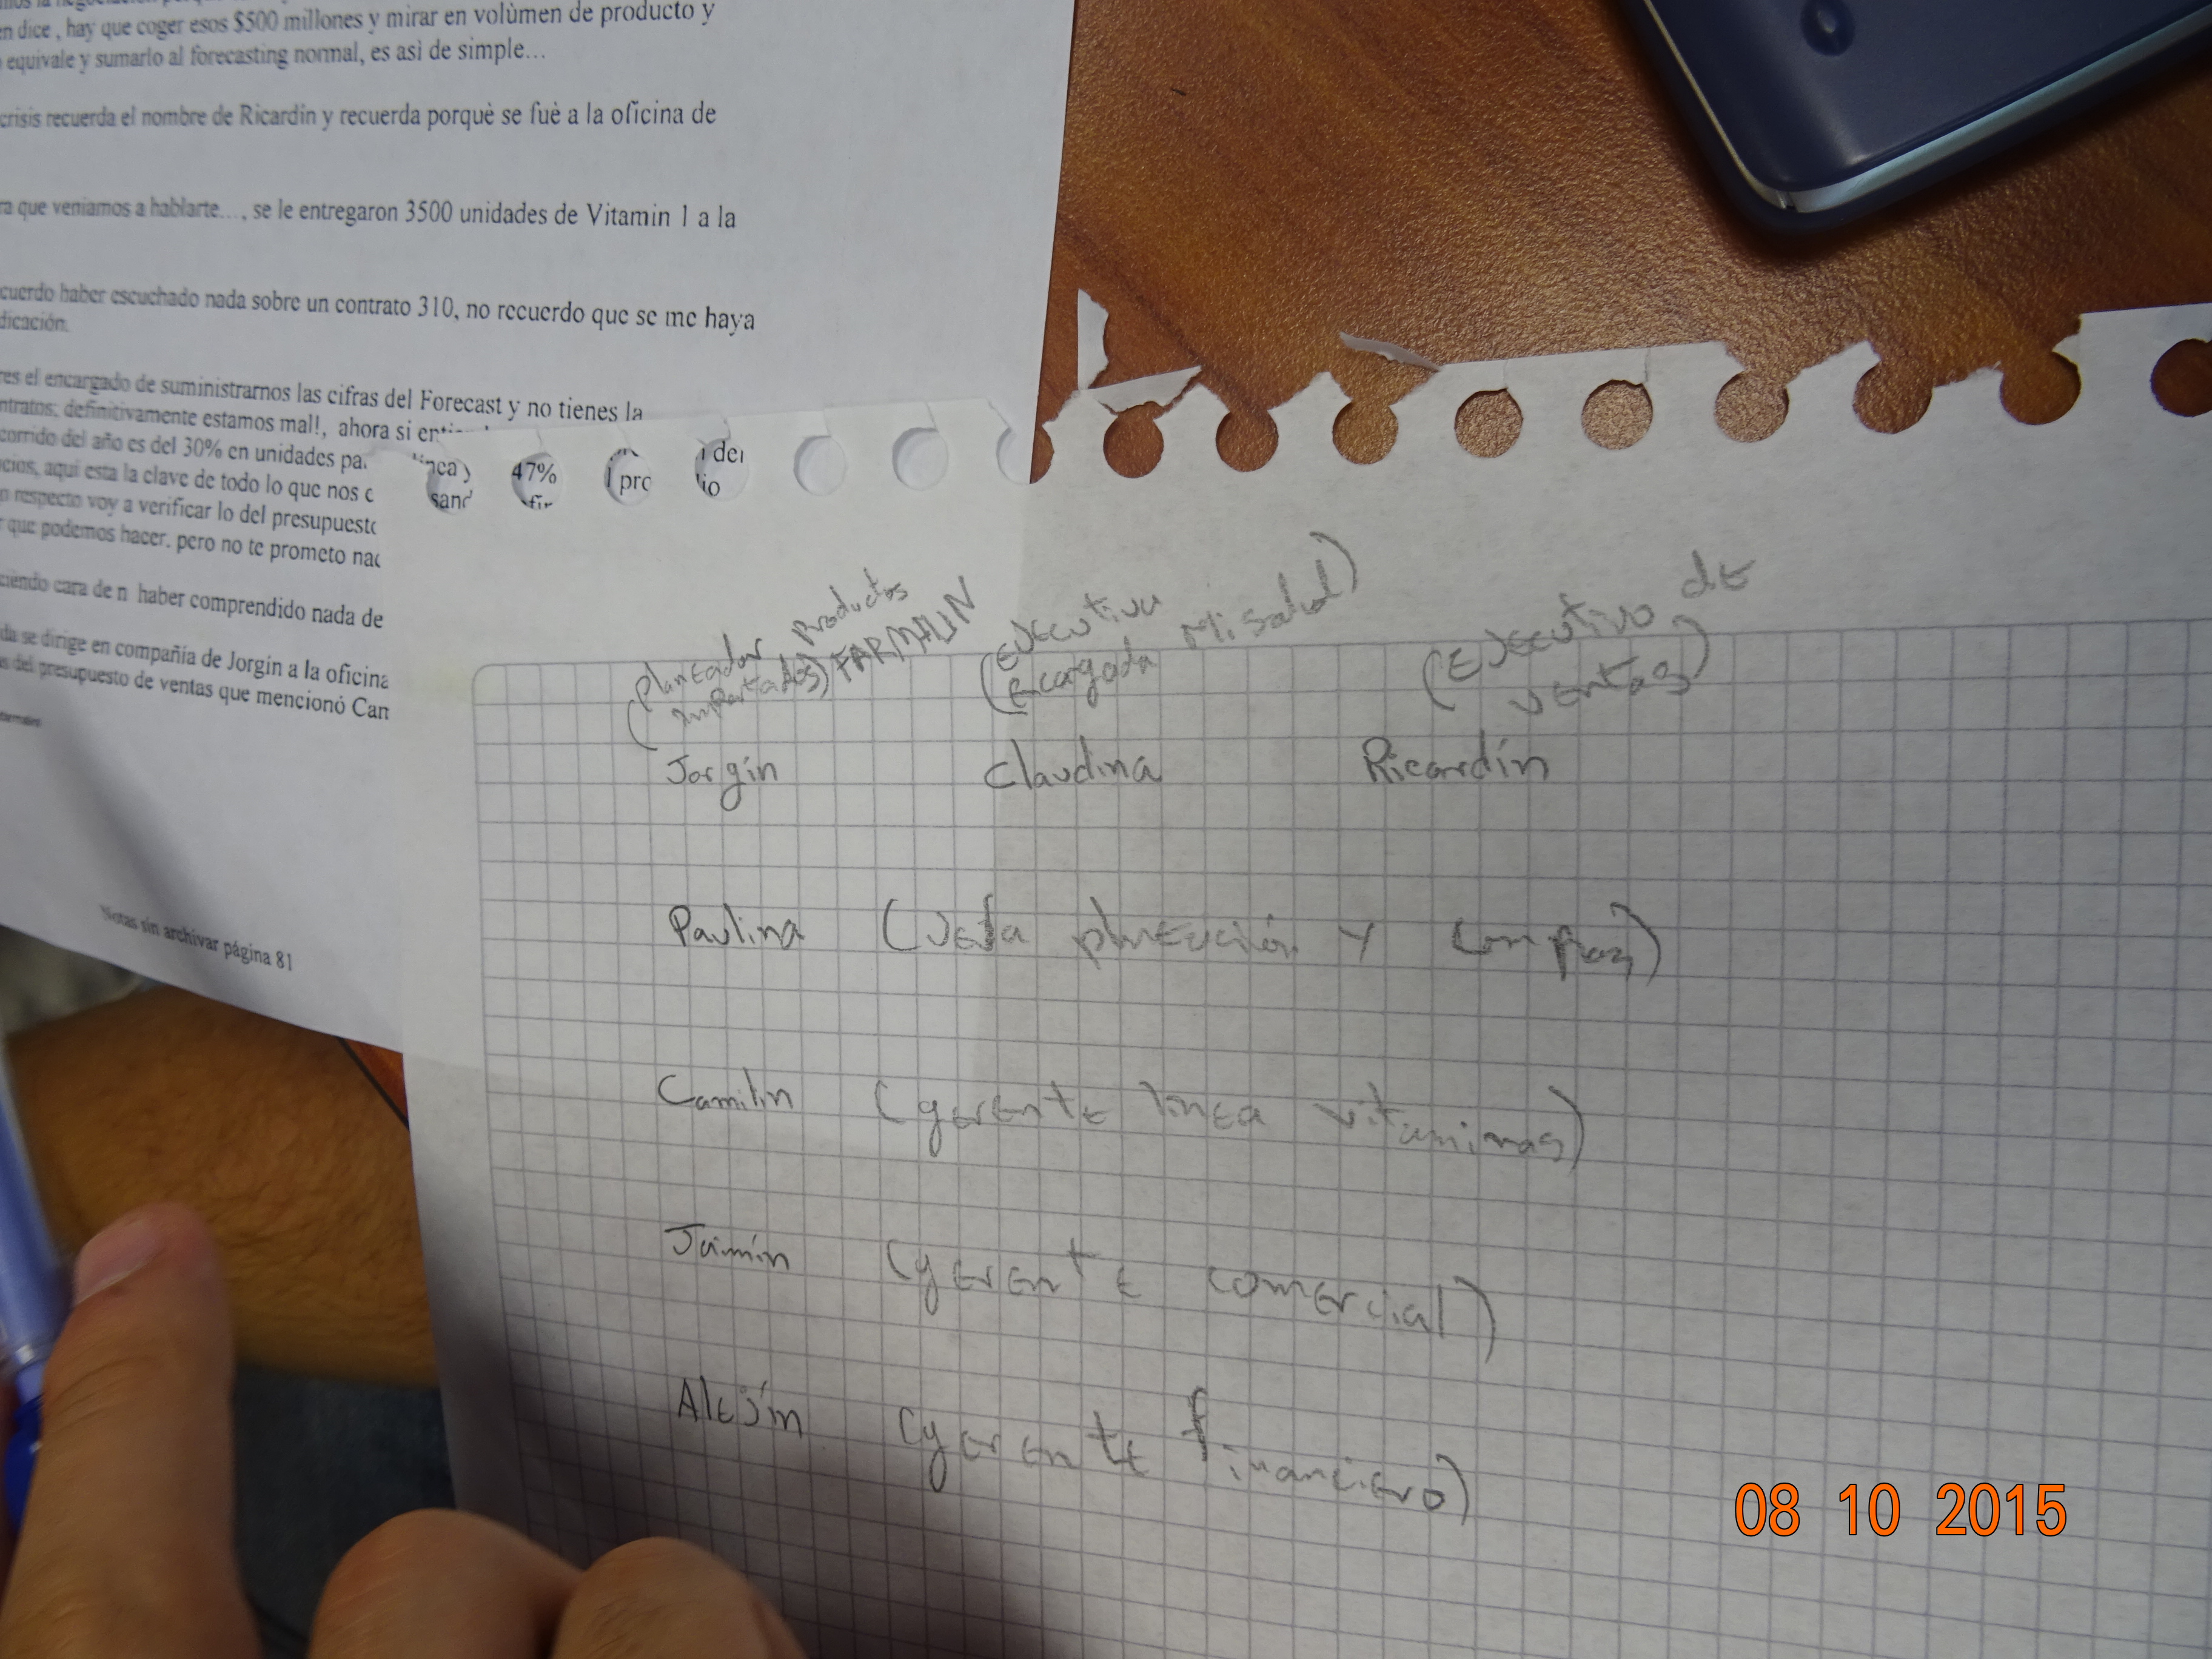 en dice , hay que coger esos $500 millones y mirar en volùmen de producto y
equivale y sumarlo al forecasting normal, es asì de simple…
crisis recuerda el nombre de Ricardin y recuerda porquè se fuè a la oficina de
ra que veniamos a hablarte…, se le entregaron 3500 unidades de Vitamin 1 a la
cuerdo haber escuchado nada sobre un contrato 310, no recuerdo que se me haya
dicación.
res el encargado de suministrarnos las cifras del Forecast y no tienes la
ntratos; definitivamente estamos mal!, ahora si
corrido del año es del 30% en unidades pa. linea y 47%
cios, aqui esta la clave de todo lo que nos
respecto voy a verificar lo del presupuesto
que podemos hacer. pero no te prometo nac
ciendo cara de n haber comprendido nada de
da se dirige en compañia de Jorgin a la oficina
s del presupuesto de ventas que mencionó Cam
Notas sin archivar página 81
(planeador productos
importados) FARMALIN
Jorgín
(Ejecutiva
Ecargada Mi salud)
Claudina
(Ejecutivo de
ventas)
Ricardín
Paulina (Jefa planeación y compras)
Camilin (gerente linea vitaminas)
Jaimín (gerente comercial)
Alejín (gerente financiero)
08 10 2015